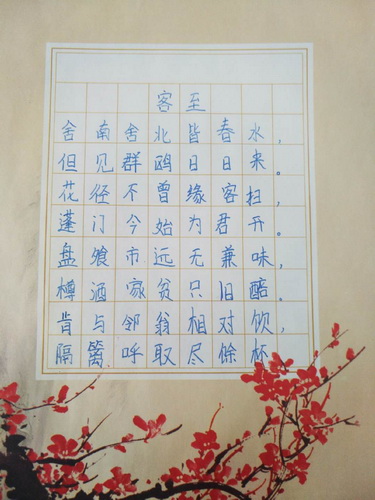 客至
舍南舍北皆春水，
但见群鸥日日来。
花径不曾缘客扫，
蓬门今始为君开。
盘飧市远无兼味，
樽酒家贫只旧醅。
肯与邻翁相对饮，
隔篱呼取尽馀杯。